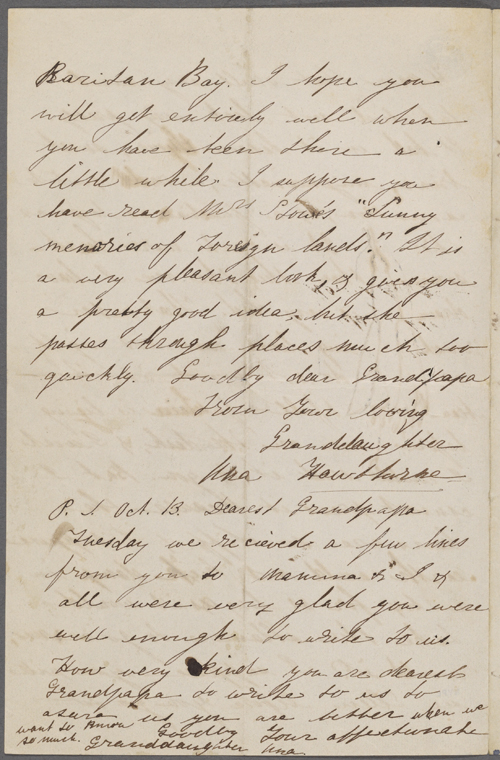 Raritan Bay. I hope you
will get entirely well when
you have been there a
little while. I suppose you
have read Mrs Stowe's "Sunny
memories of Foreign lands." It is
a very pleasant book, & gives you
a pretty good idea, but she
passes through places much too
quickly. Goodby dear Grandpapa
From Your loving
Granddaughter
Una Hawthorne
P. S. Oct. 13. Dearest Grandpapa
Tuesday we recieved a few lines
from you to mamma & I &
all were very glad you were
well enough to write to us.
How very kind you are dearest
Grandpapa to write to us to
asure us you are better when we
want to know so much. Goodby Your affectionate
Granddaughter Una